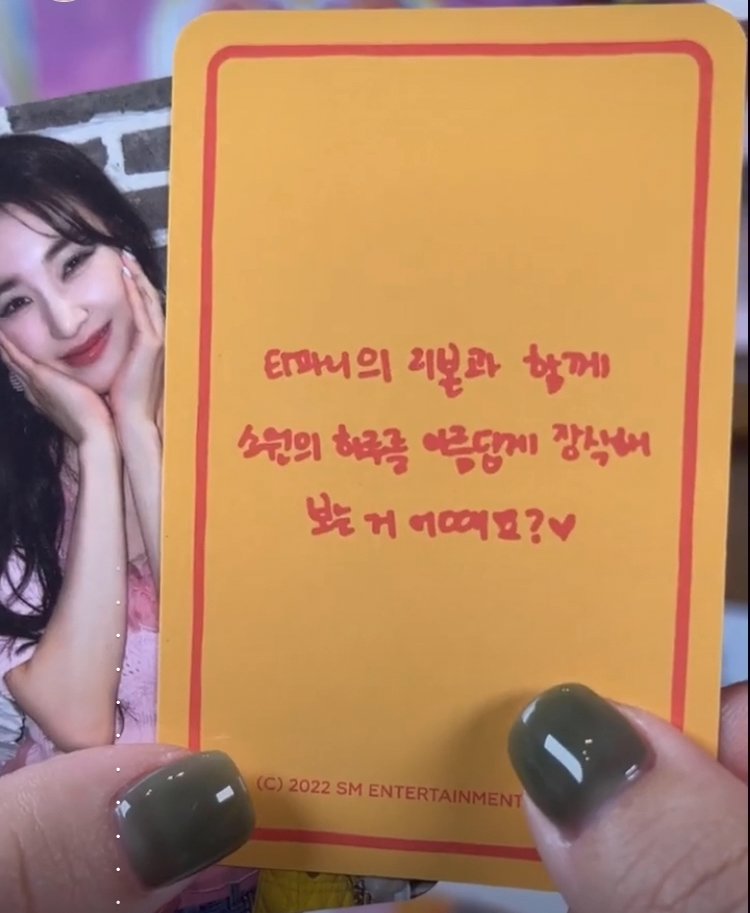 티파니의 리본과 함께
소원의 하루를 아름답게 장식해
보는 거 어때요?♥
(C) 2022 SM ENTERTAINMENT